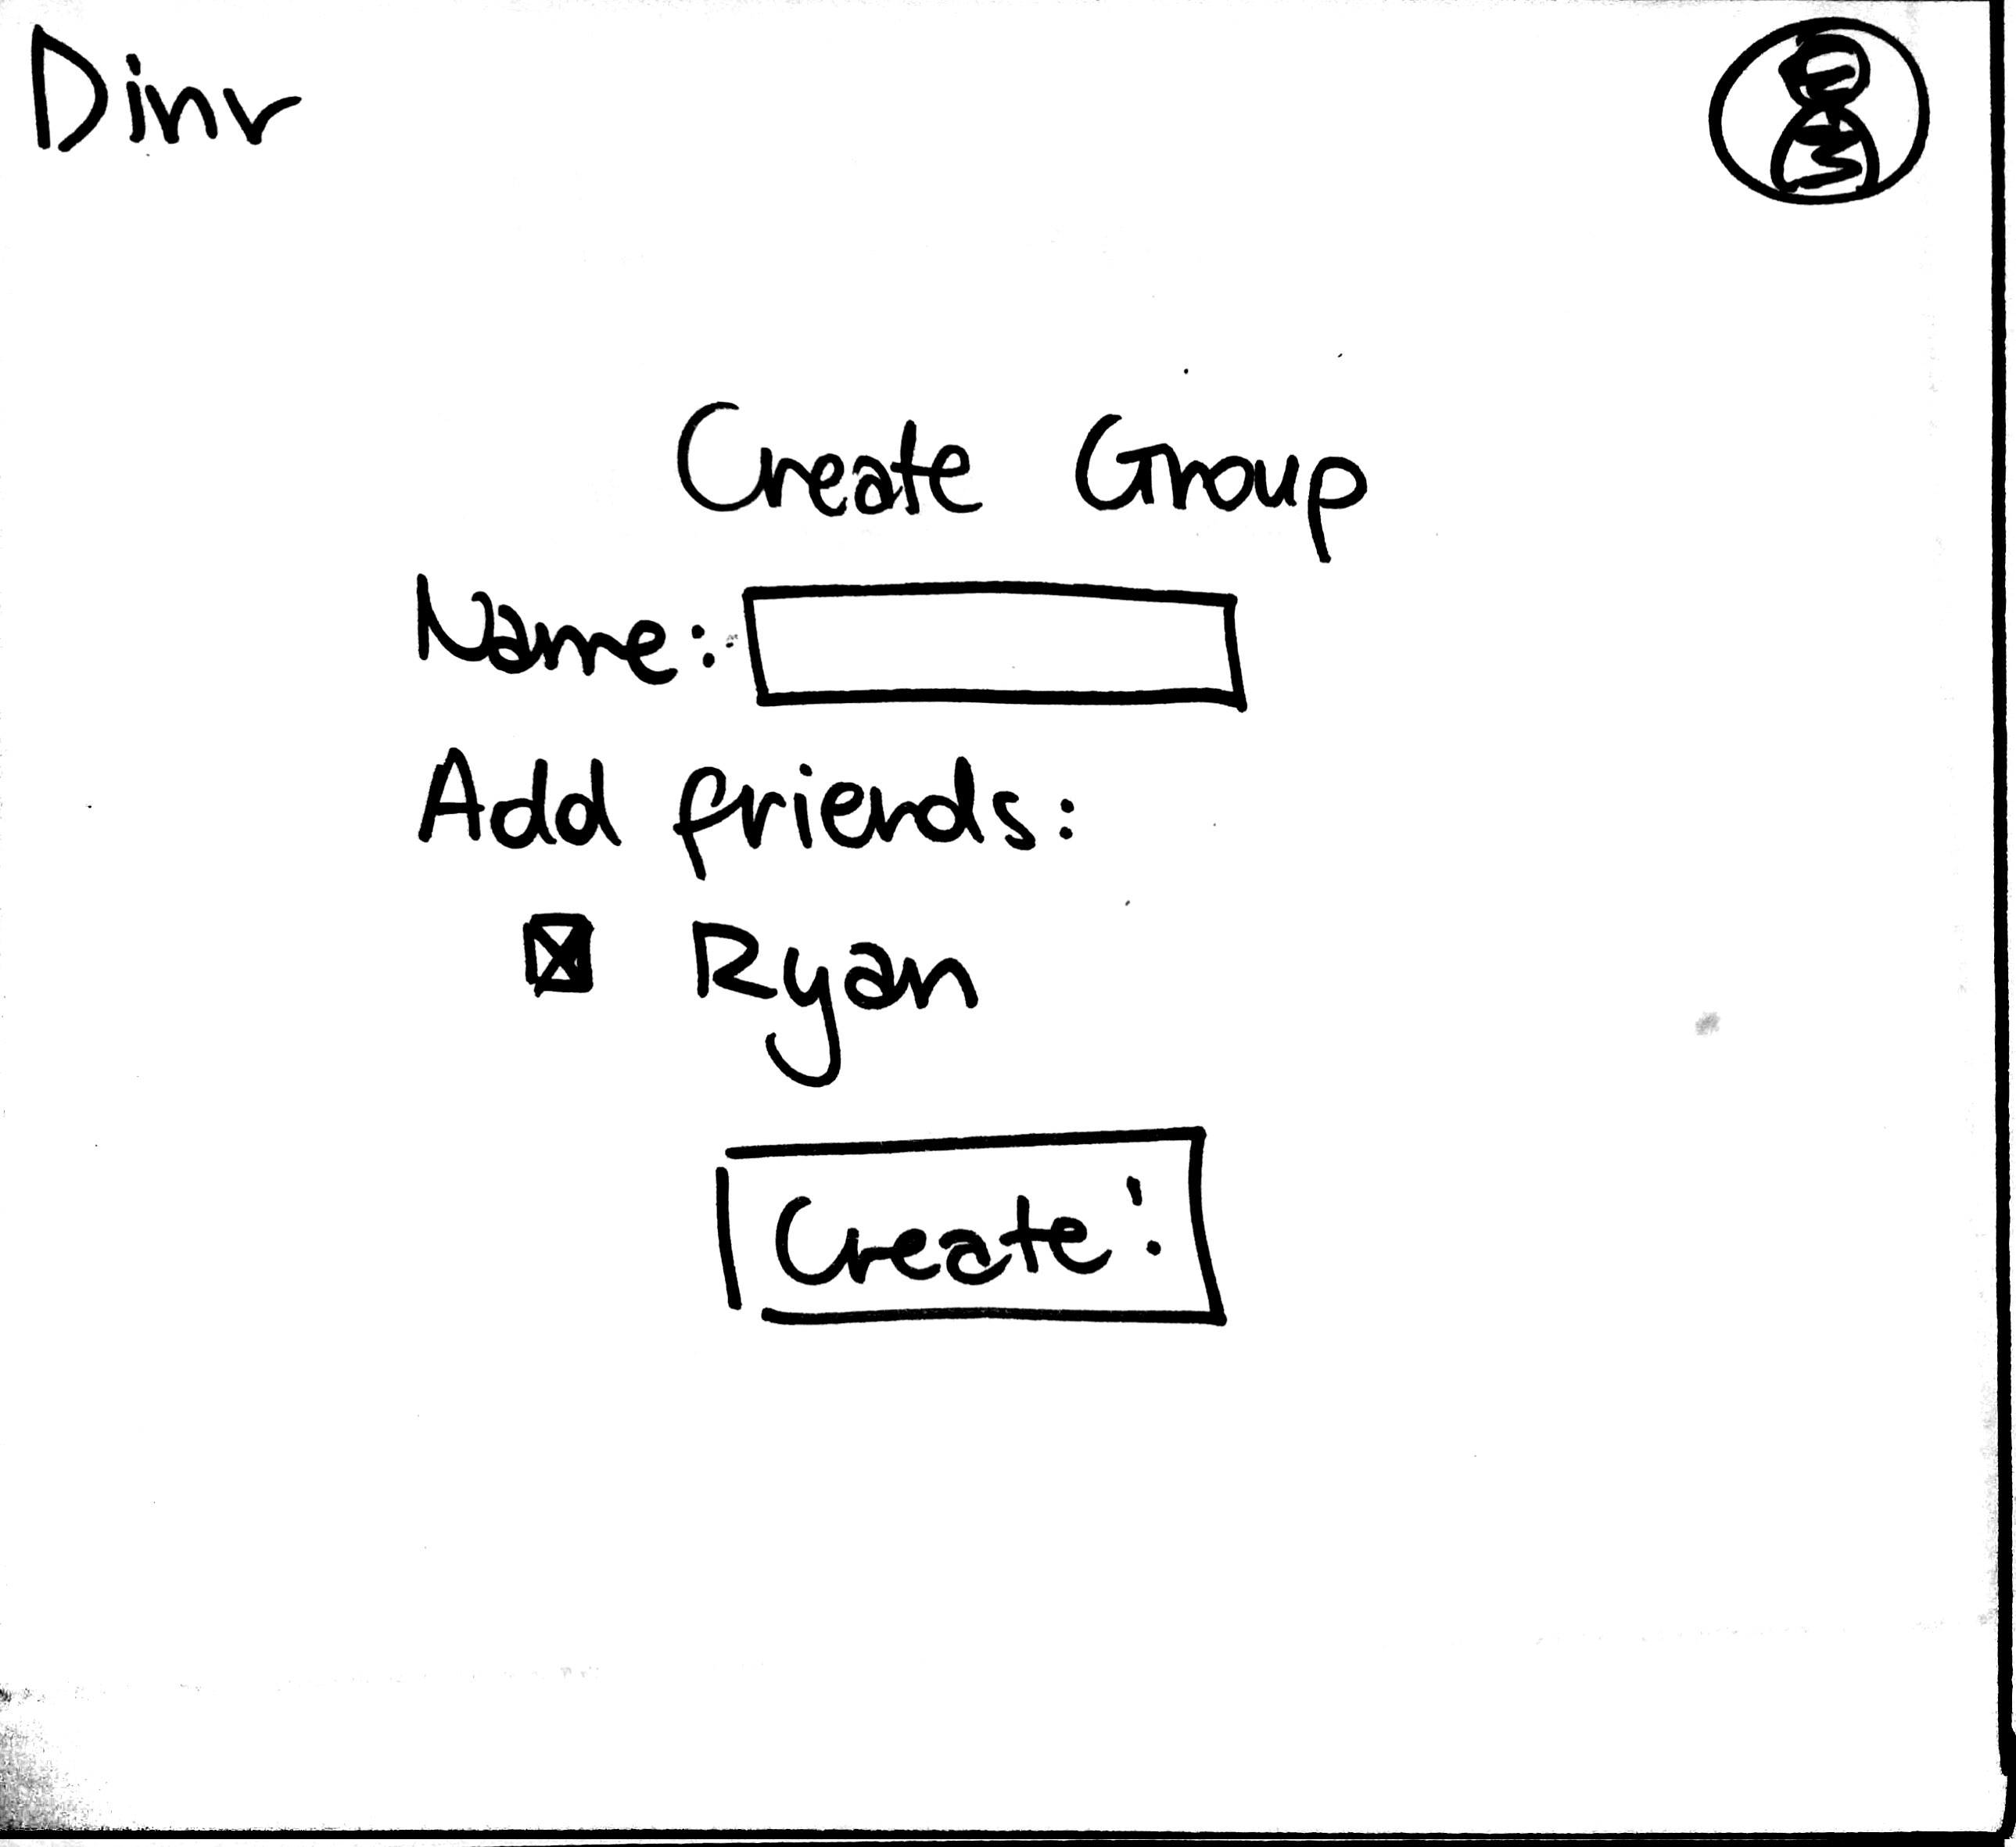 Dinr
Create Group
Name:
Add friends:
Ryan
Create!